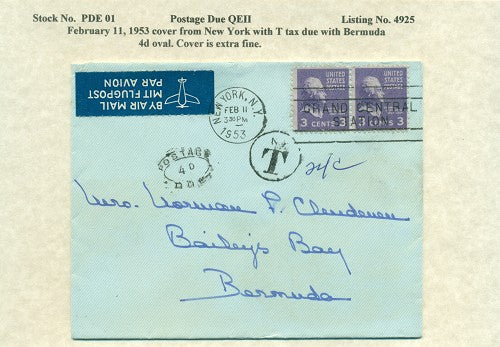 Stock No. PDE 01 Postage Due QEII Listing No. 4925
February 11, 1953 cover from New York with T tax due with Bermuda
4d oval. Cover is extra fine.
BY AIR MAIL
MIT FLUGPOST
PAR AVION
NEW YORK, N.Y.
FEB 11
3 30 PM
1953
UNITED STATES
UNITED STATES
GRAND CENTRAL
STATION
3 CENTS 3
3 CENTS 3
N.Y.
T
POSTAGE
4D
DUE
Mrs. Norman P. Cludenen
Baileys Bay
Bermuda